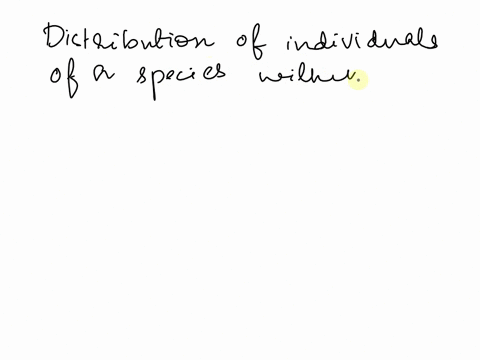 Distribution of individuals
of a species within